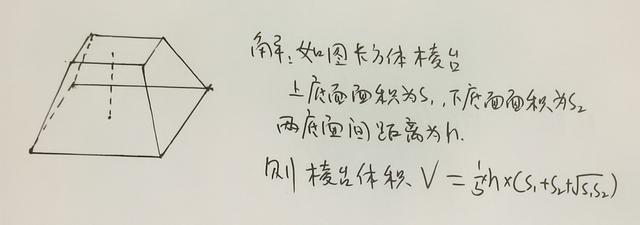 解:如图长方体棱台
上底面面积为S₁,下底面面积为S₂
两底面间距离为h.
则棱台体积、V=⅕×h×(S₁+S₂+√S₁S₂)